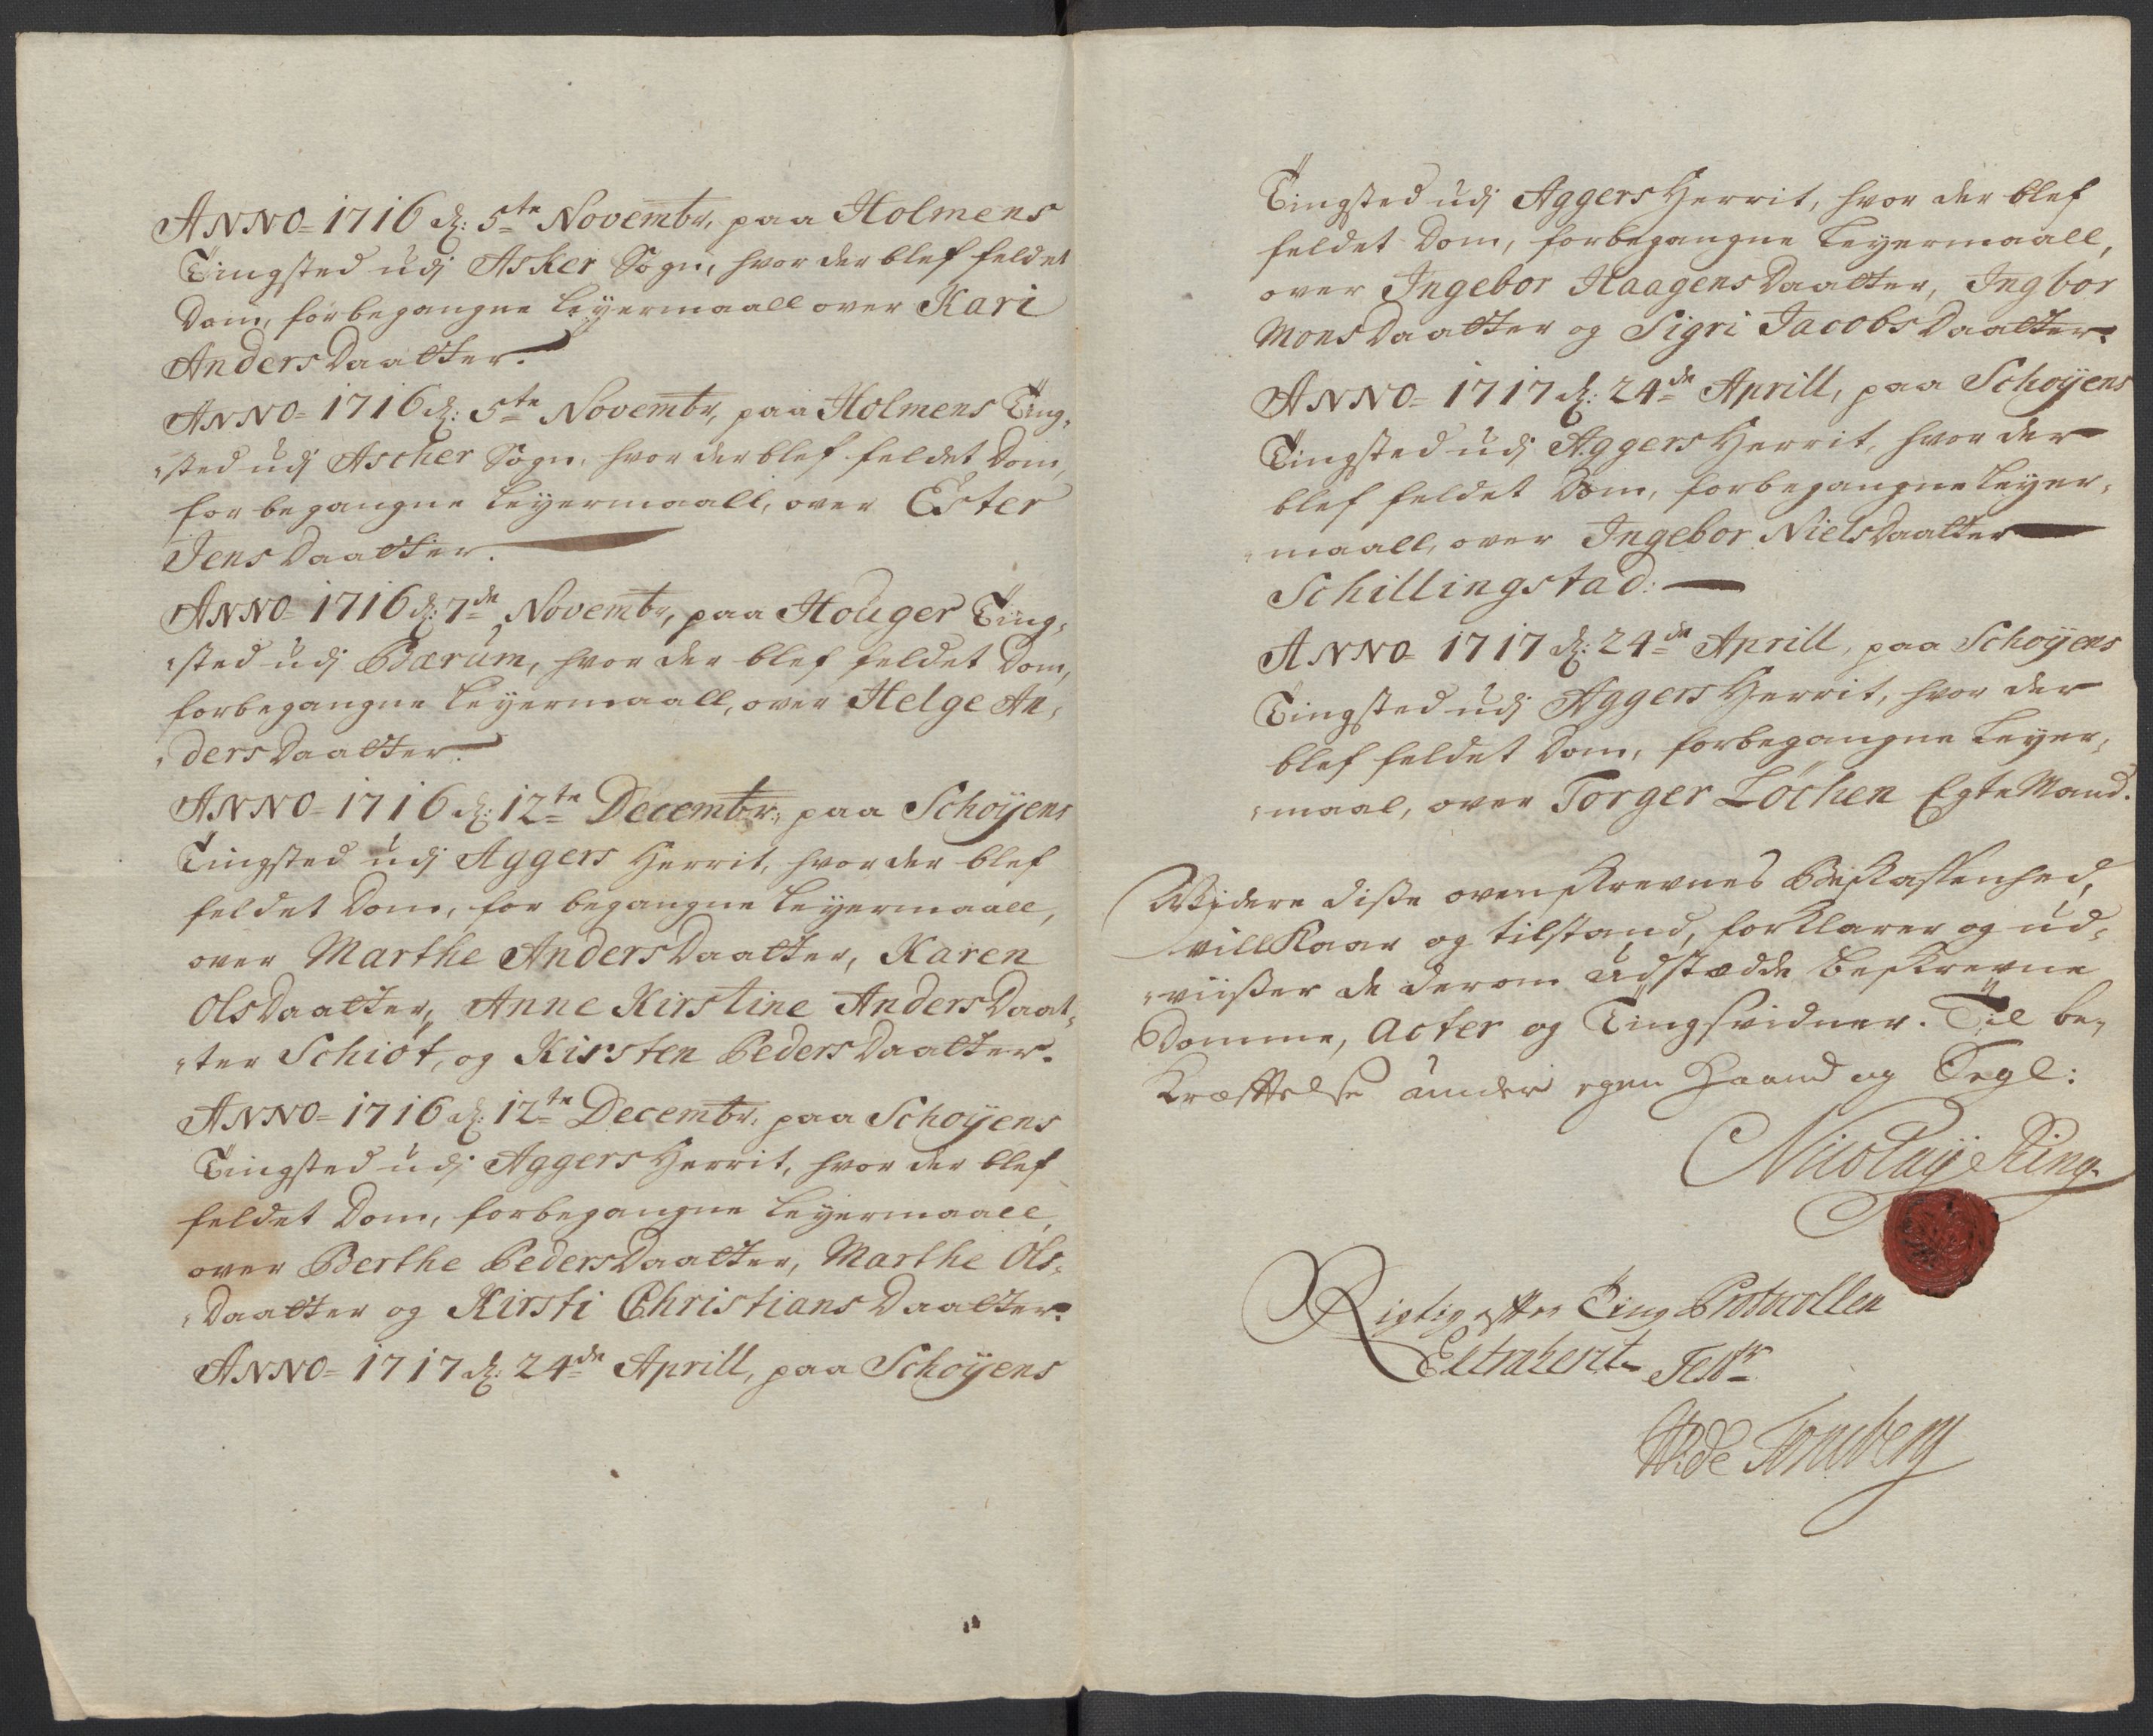 ANNO= 1716 d: 5te Novembr, paa Holmens
Tingsted udj Asker Sogn, hvor der blef feldet
Dom, for begangne Leyermaall over Kari
Anders Daatter.
ANNO= 1716 d: 5te Novembr, paa Holmens Ting-
-sted udj Ascher Sogn, hvor der blef feldet Dom,
for begangne Leyermaall, over Ester
Jens Daatter.
ANNO= 1716 d: 7de Novembr, paa Houger Ting-
-sted udj Bærum, hvor der blef feldet Dom,
for begangne Leyermaall, over Helge An-
-ders Daatter.
ANNO= 1716 d: 12te Decembr, paa Schøyens
Tingsted udj Aggers Herrit, hvor der blef
feldet Dom, for begangne Leyermaall,
over Marthe Anders Daatter, Karen
Ols Daatter, Anne Kirstine Anders Daat-
-ter Schiøt, og Kirsten Peders Daatter.
ANNO= 1716 d: 12te Decembr, paa Schoyens
Tingsted udj Aggers Herrit, hvor der blef
feldet Dom, for begangne Leyermaall,
over Berthe Peders Daatter, Marthe Ols-
-Daatter og Kirsti Christians Daatter.
ANNO= 1717 d: 24de Aprill, paa Schøyens
Tingsted udj Aggers Herrit, hvor der blef
feldet Dom, for begangne Leyermaall,
over Ingebor Haagens Daatter, Ingbor
Mons Daatter og Sigri Jacobs Daatter.
ANNO= 1717 d: 24de Aprill, paa Schoyens
Tingsted udj Aggers Herrit, hvor der
blef feldet Dom, for begangne Leyer-
-maall, over Ingebor Niels Daatter
Schillingstad:
ANNO= 1717 d: 24de Aprill, paa Schoyens
Tingsted udj Aggers Herrit, hvor der
blef feldet Dom, for begangne Leyer-
-maal, over Torger Løchen Egte Mand.
Widere disse ovenskrevnes Beskaffenhed,
villkaar og tilstand, forklarer og ud-
-viisser de derom udstædde beskrevne
Domme, Acter og Tingsvidner. Til be-
Kræfftelse under egen Haand og Segl:
Nicolay Ring
Rigtig effter Ting Protocollen
Extraherit Test:
Wide Tonsberg